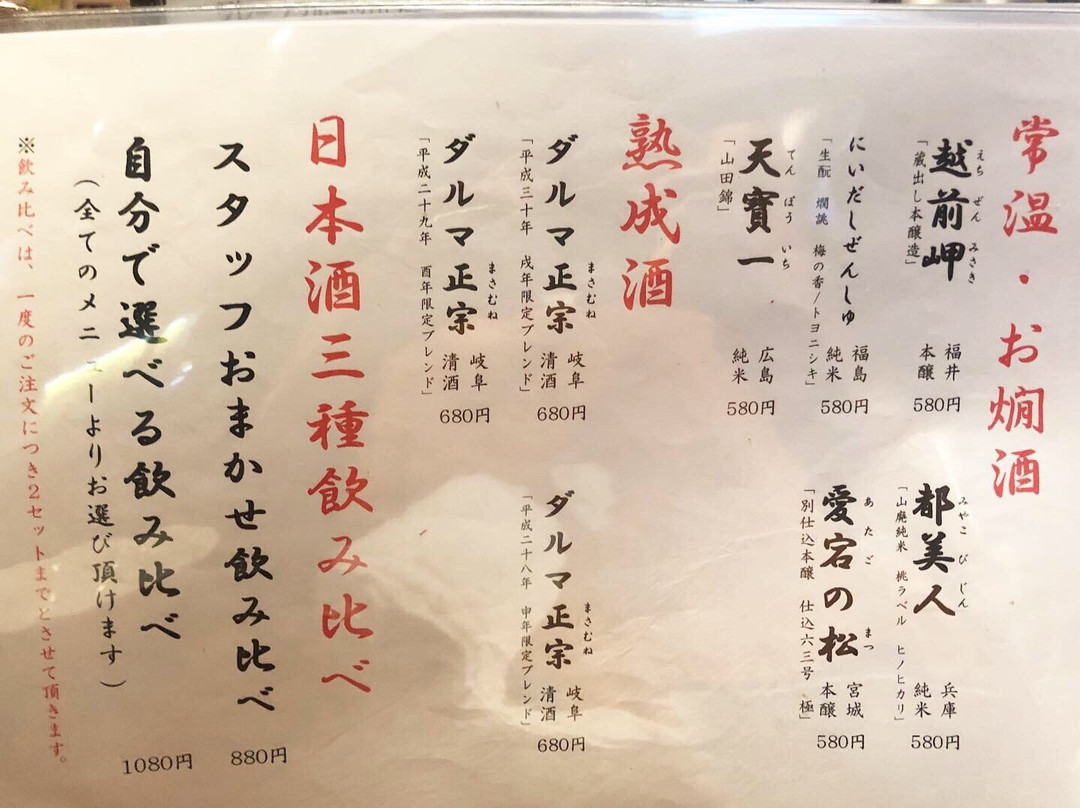 常温・お燗酒
越前岬
えちぜんみさき
「蔵出し本醸造」
福井
本醸
580円
都美人
みやこびじん
「山廃純米 桃ラベル ヒノヒカリ」
兵庫
純米
580円
にいだしぜんしゅ
「生酛 燗誂 梅の香/トヨニシキ」
福島
純米
580円
愛宕の松
あたごまつ
「別仕込本醸 仕込六三号 極」
宮城
本醸
580円
天寶一
てんぼういち
「山田錦」
広島
純米
580円
熟成酒
ダルマ正宗
まさむね
「平成三十年 戌年限定ブレンド」
岐阜
清酒
680円
ダルマ正宗
まさむね
「平成二十八年 申年限定ブレンド」
岐阜
清酒
680円
ダルマ正宗
まさむね
「平成二十九年 酉年限定ブレンド」
岐阜
清酒
680円
日本酒三種飲み比べ
スタッフおまかせ飲み比べ
880円
自分で選べる飲み比べ
(全てのメニューよりお選び頂けます)
1080円
※飲み比べは、一度のご注文につき2セットまでとさせて頂きます。